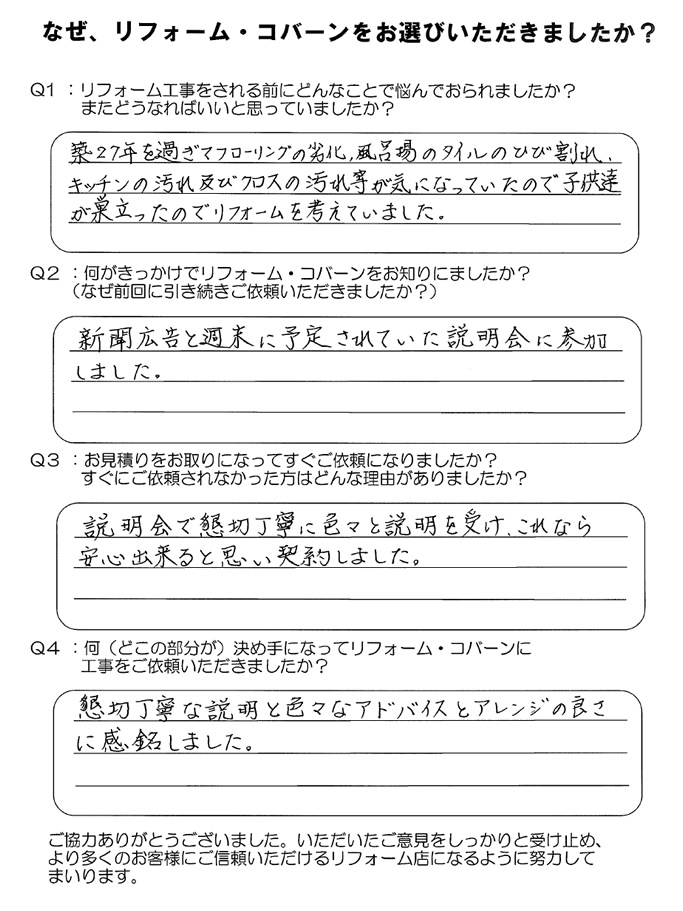 なぜ、リフォーム・コバーンをお選びいただきましたか？
Q1 ：リフォーム工事をされる前にどんなことで悩んでおられましたか？
またどうなればいいと思っていましたか？
築27年を過ぎてフローリングの劣化,風呂場のタイルのひび割れ、
キッチンの汚れ及びクロスの汚れ等が気になっていたので子供達
が巣立ったのでリフォームを考えていました。
Q2 ：何がきっかけでリフォーム・コバーンをお知りにましたか？
（なぜ前回に引き続きご依頼いただきましたか？）
新聞広告と週末に予定されていた説明会に参加
しました。
Q3 ：お見積りをお取りになってすぐご依頼になりましたか？
すぐにご依頼されなかった方はどんな理由がありましたか？
説明会で懇切丁寧に色々と説明を受け、これなら
安心出来ると思い契約しました。
Q4 ：何（どこの部分が）決め手になってリフォーム・コバーンに
工事をご依頼いただきましたか？
懇切丁寧な説明と色々なアドバイスとアレンジの良さ
に感銘しました。
ご協力ありがとうございました。いただいたご意見をしっかりと受け止め、
より多くのお客様にご信頼いただけるリフォーム店になるように努力して
まいります。